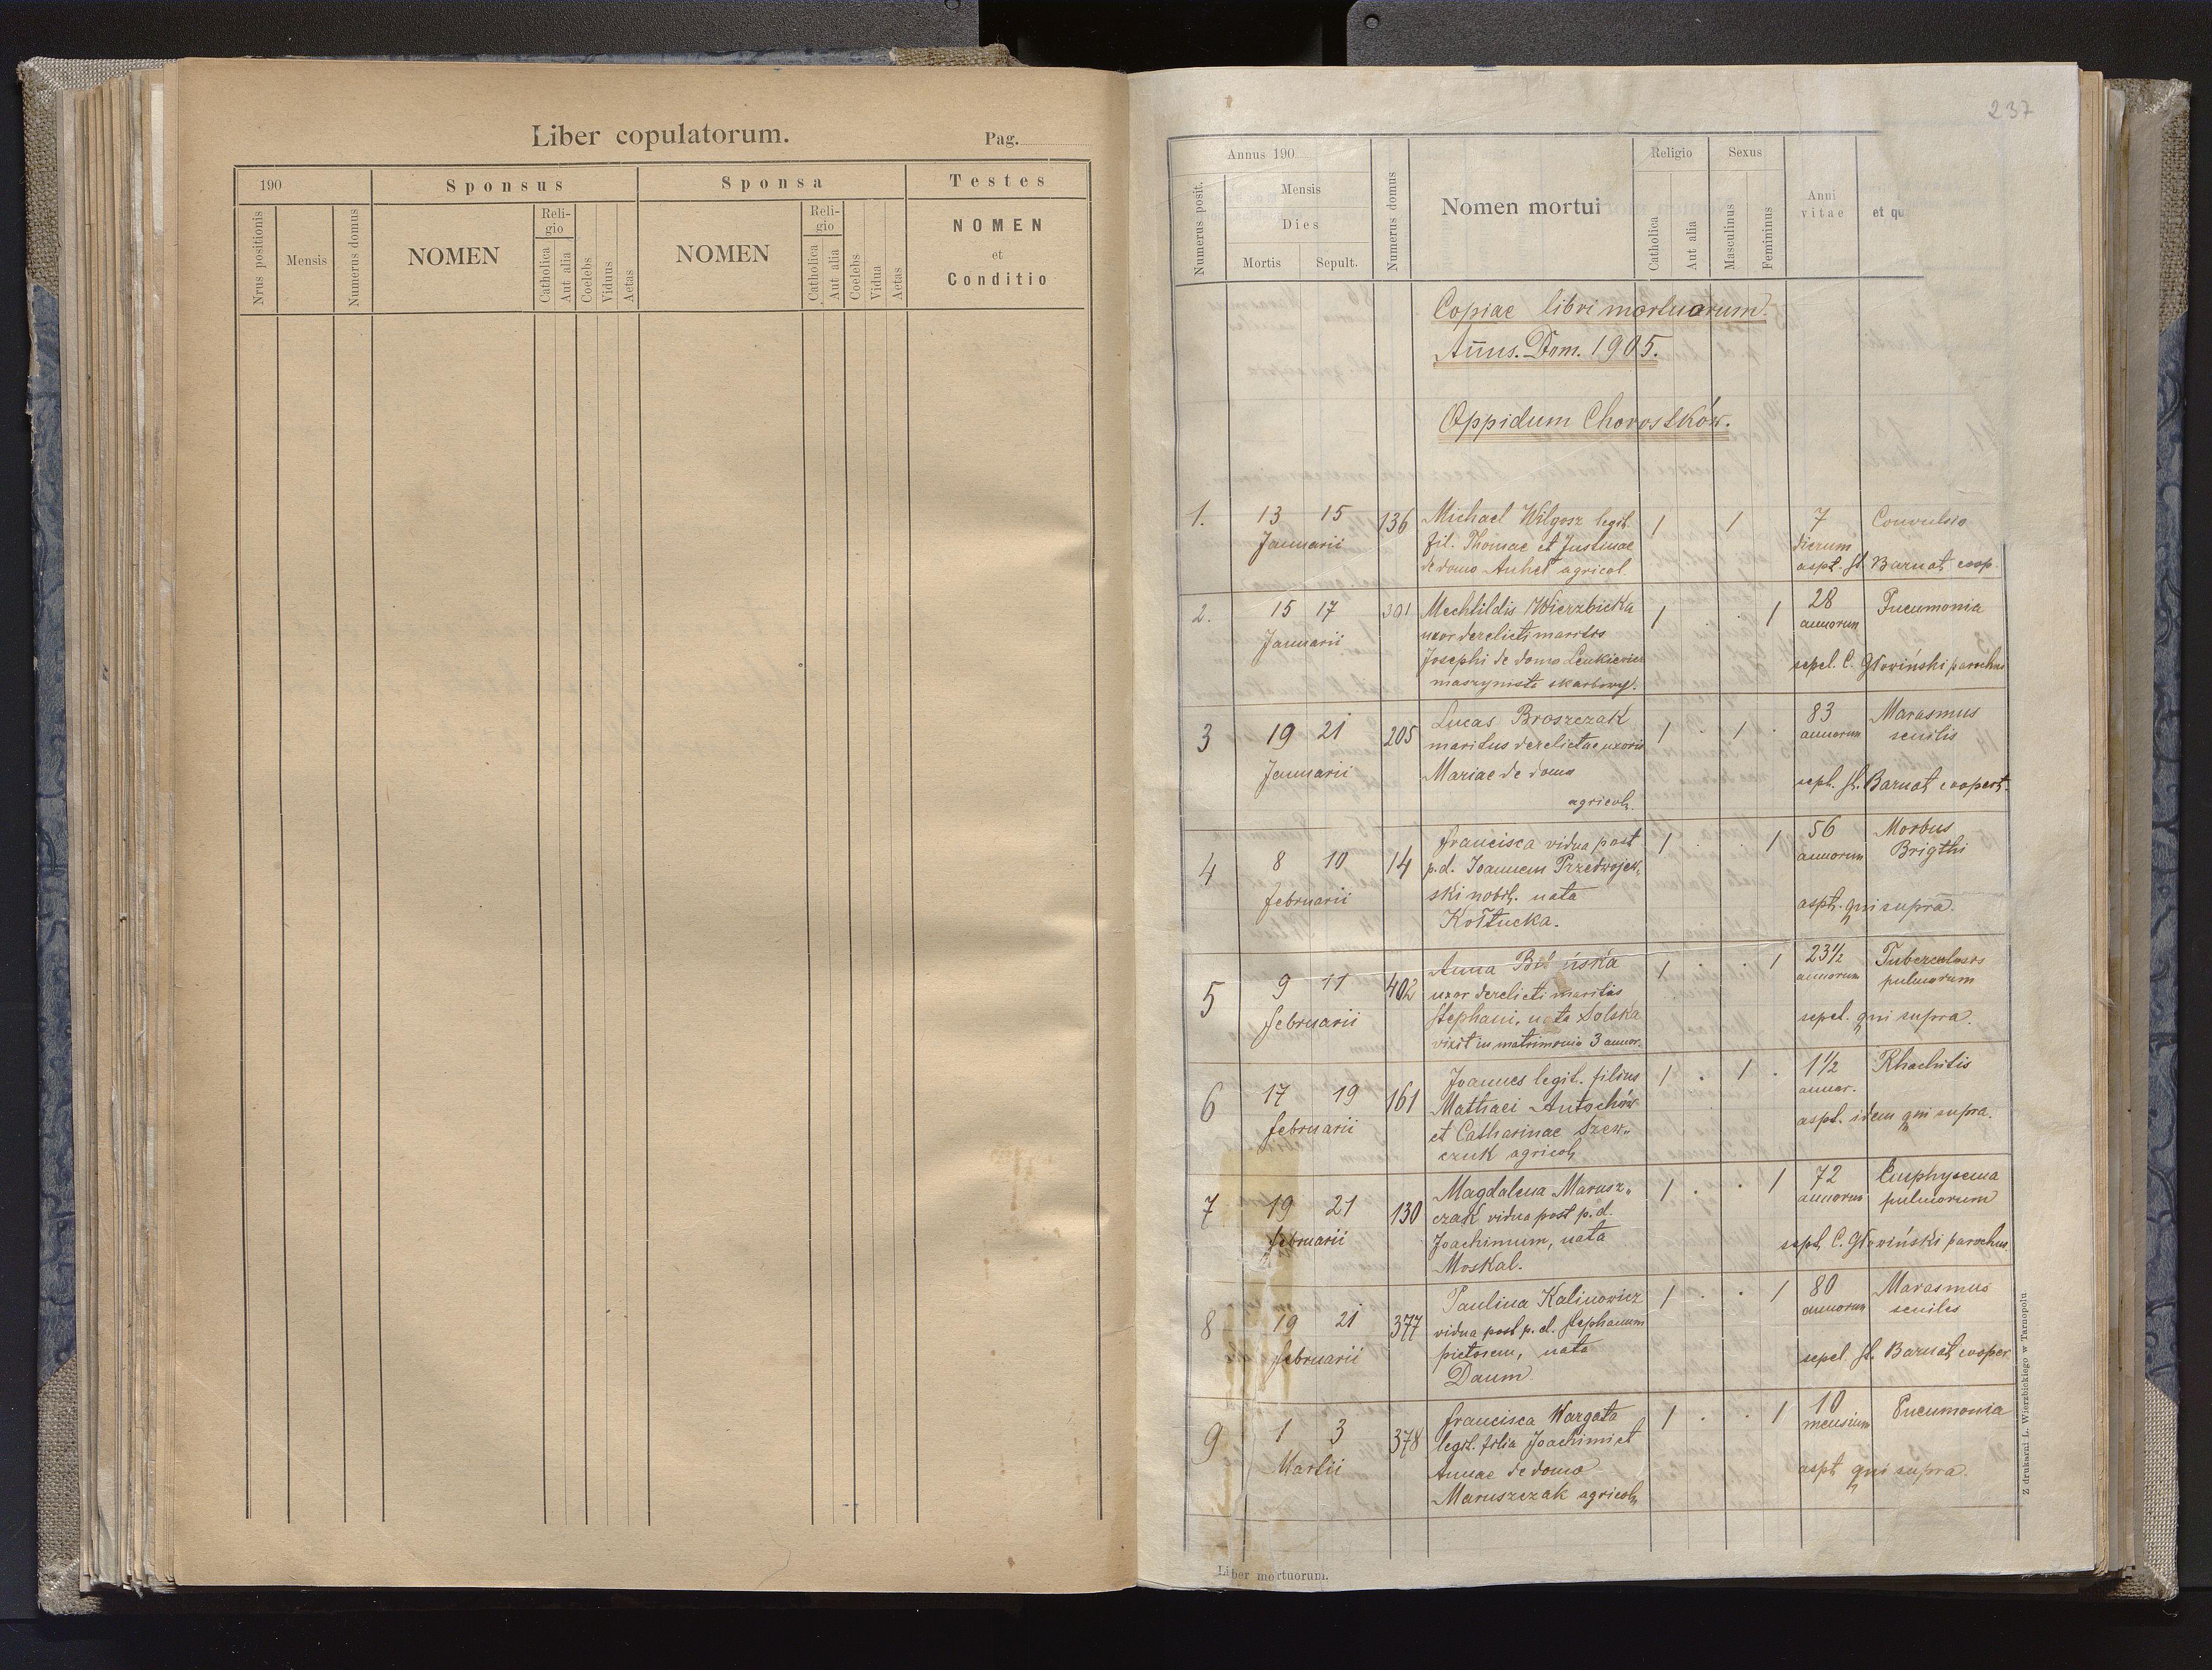 Liber copulatorum.
Pag.
190
Sponsus
Sponsa
Testes
Nrus positionis
Mensis
Numerus domus
NOMEN
Reli-
gio
Catholica
Aut alia
Coelebs
Viduus
Aetas
NOMEN
Reli-
gio
Catholica
Aut alia
Coelebs
Vidua
Aetas
NOMEN
et
Conditio
237
Annus 190
Numerus posit.
Mensis
Dies
Mortis
Sepult.
Numerus domus
Nomen mortui
Religio
Catholica
Aut alia
Sexus
Masculinus
Femininus
Anni
vitae
et qu
Copiae libri mortuorum.
Añus. Dom. 1905.
Oppidum Chorostków.
1. 13 15 136 Michael Wilgosz legit. 1 1 7 Convulsio
Januarii fil. Thomae et Justinae dierum
de domo Anhel agricol. aspt. St. Barnat coop.
2. 15 17 301 Mechtildis Wierzbicka 1 . . 1 28 Pneumonia
Januarii uxor derelicti maritis annorum
Josephi de domo Leukiewicz sepel. C. Głowiński parochus
maszynista skarbowy.
3 19 21 205 Lucas Broszczak 1 . 1 . 83 Marasmus
maritus derelictae uxoris annorum senilis
Januarii Mariae de domo sepl. St. Barnat coopert.
agricol.
4 8 10 14 Francisca vidua post 1 . . 1 56 Morbus
p.d. Joannem Przedwojew„ annorum Brigthi
februarii ski nobil. nata aspt. qui supra.
Kołtucka.
5 9 11 402 Anna 1 . . 1 23½ Tuberculosis
uxor derelicti maritis annorum pulmorum
februarii Stephani, nata Solska sepel. qui supra.
vixit in matrimonio 3 annor.
6 17 19 161 Joannes legit. filius 1 . 1 . 1½ Rhachitis
Mathaei Antochów annor.
februarii et Catharinae Szew„ aspt. idem qui supra.
czuk agricol.
7 19 21 130 Magdalena Marusz„ 1 . . 1 72 Emphysema
czak vidua post p.d. annorum pulmorum
februarii Joachimum, nata sepl. C. Głowiński parochus
Moskal.
8 19 21 377 Paulina Kalinowicz 1 . . 1 80 Marasmus
vidua post p.d. Stephanum annorum senilis
februarii pictorem, nata sepel St. Barnat cooper.
Daum.
9 1 3 378 Francisca Wargata 1 . . 1 10 Pneumonia
legit. filia Joachimi et mensium
Martii Annae de domo aspt qui supra.
Maruszczak agricol.
Liber mortuorum.
Z drukarni L. Wierzbickiego w Tarnopolu